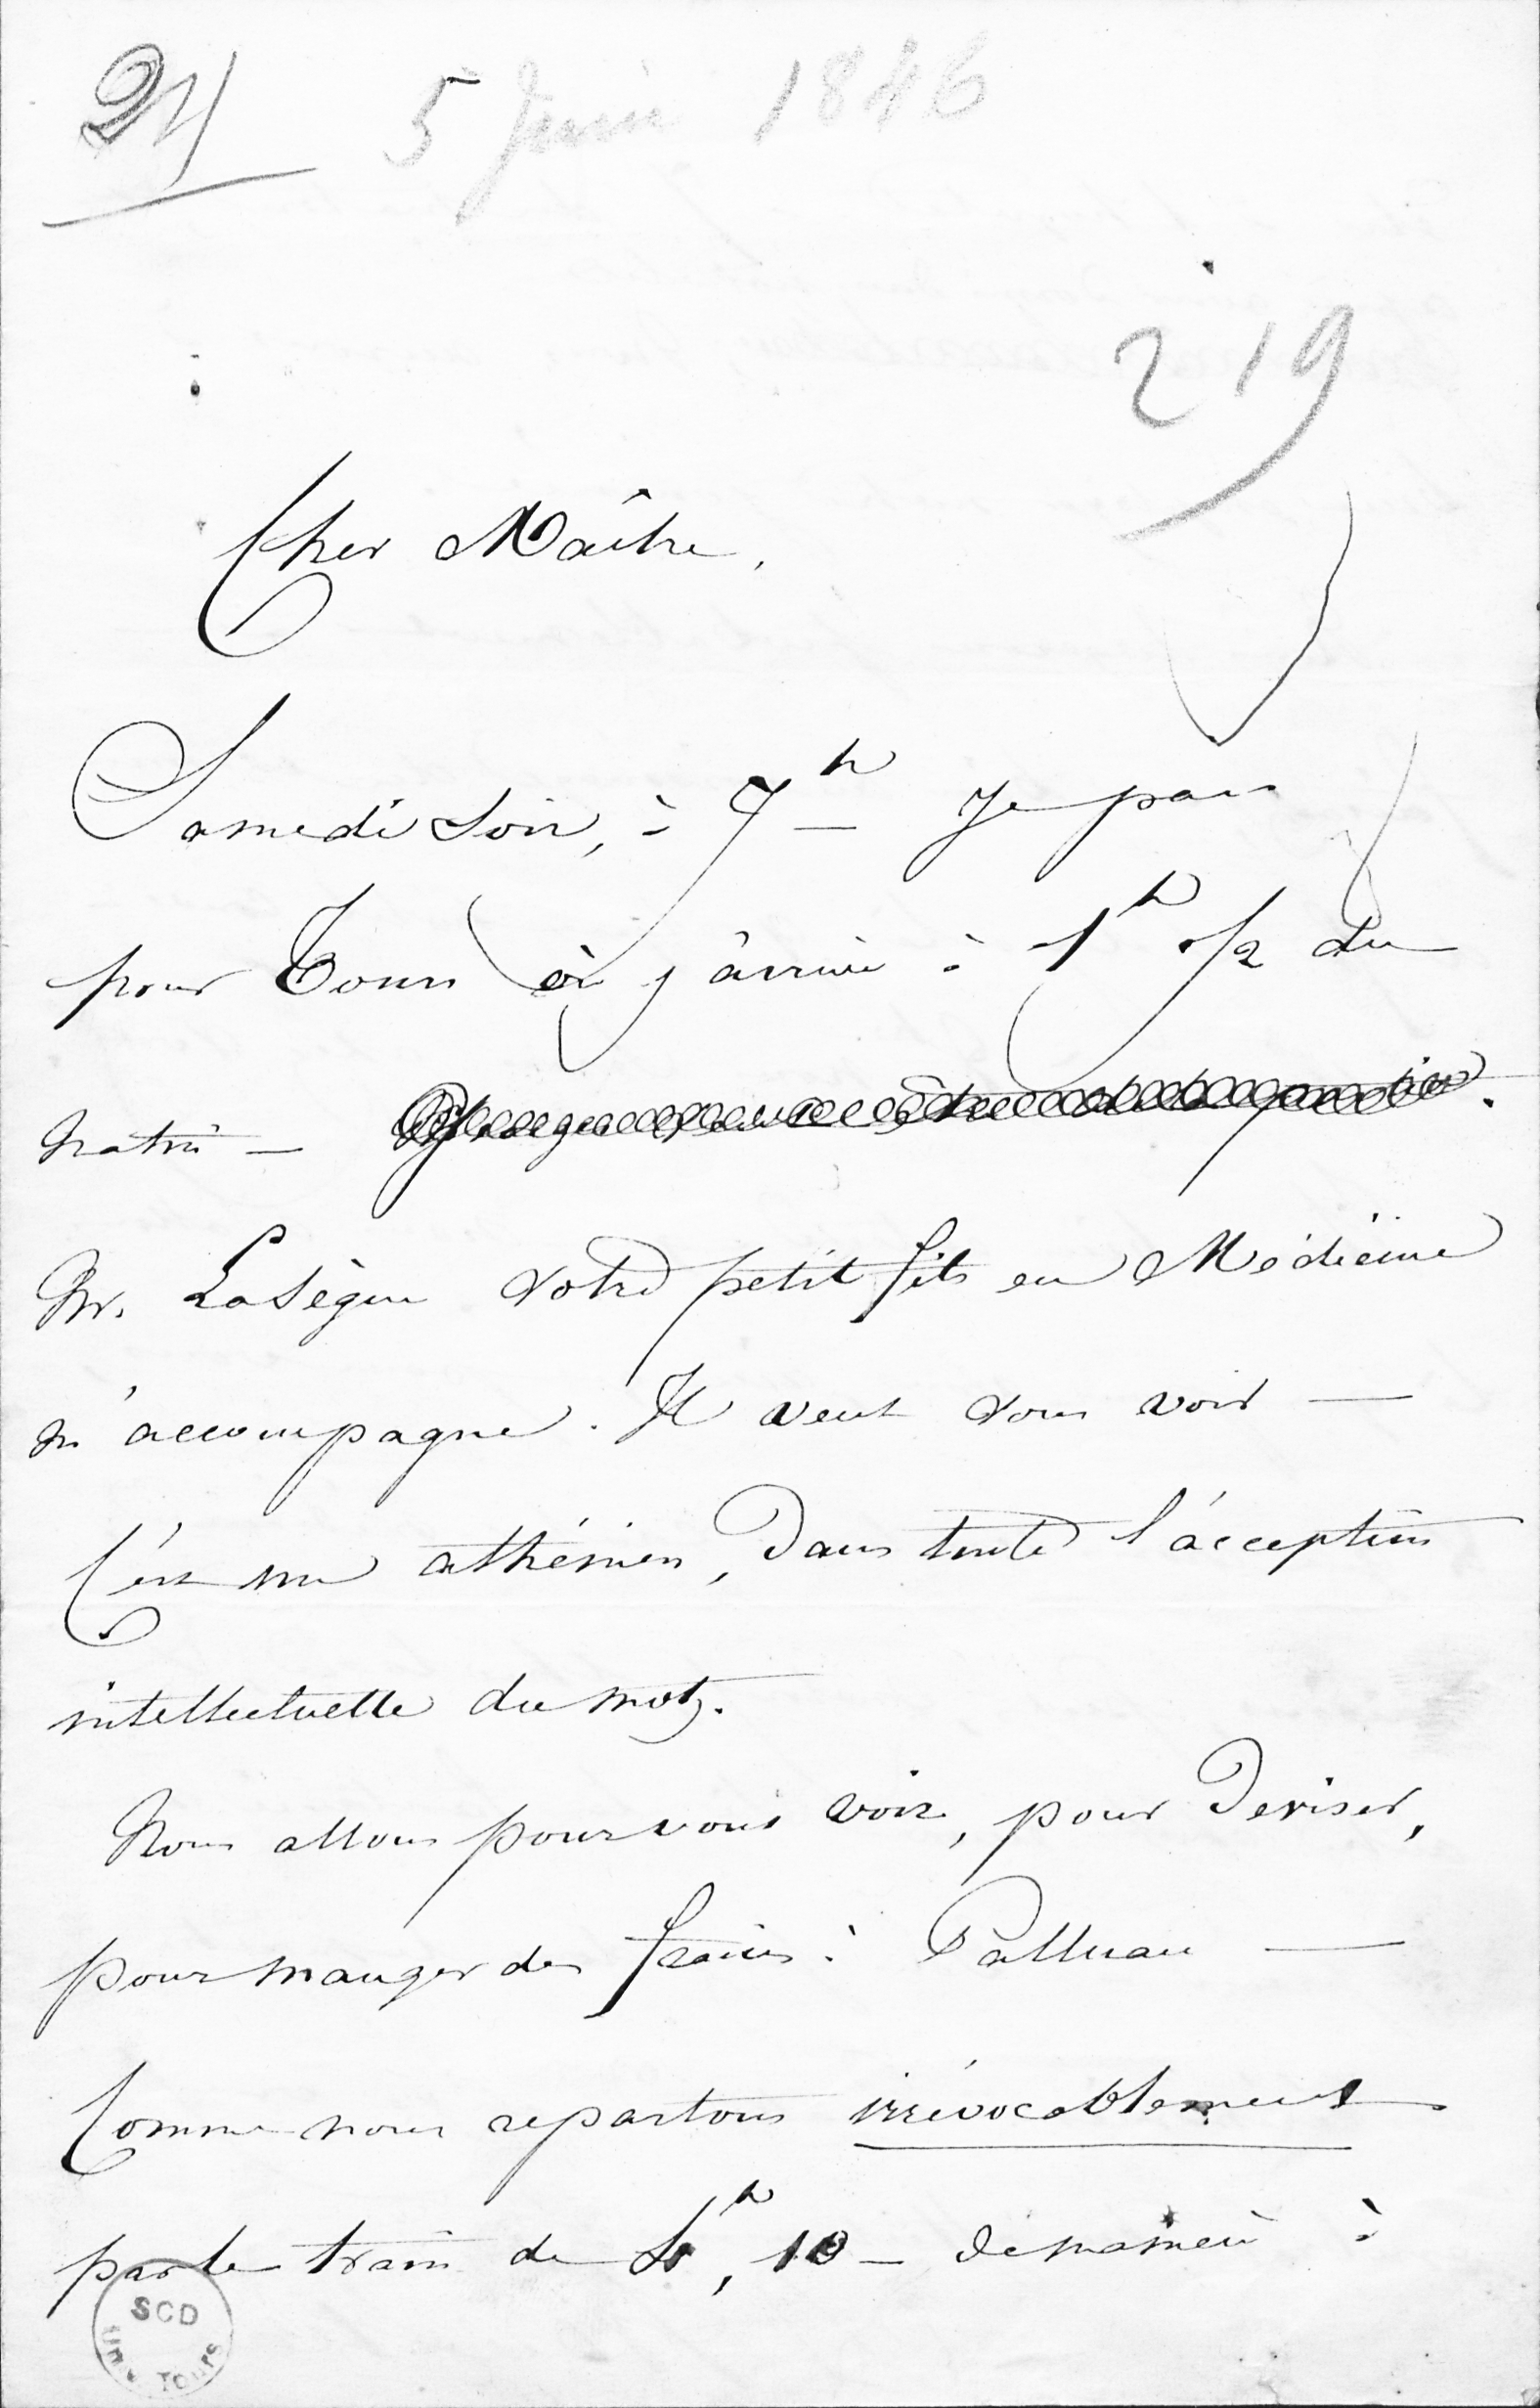 24 5 Juin 1846
219
Cher Maître,
Samedi soir, à 7h Je pars
pour Tours où j'arrive à 1h 1/2 du
matin —
Mr. Lasègue votre petit fils en Médecine
m'accompagne. Il veut vous voir —
C'est un athénien, dans toute l'acception
intellectuelle du mot.
Nous allons pour vous voir, pour deviser,
pour manger des fraises à Palluau —
Comme nous repartons irrévocablement
par le train de 4h, 10 — de manière à
SCD
Univ Tours